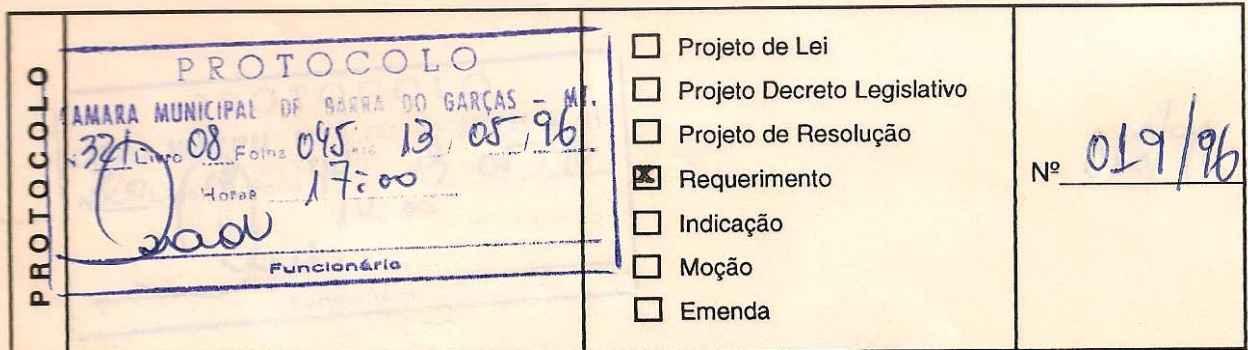 PROTOCOLO
PROTOCOLO
CAMARA MUNICIPAL DE BARRA DO GARÇAS - MT.
321 Livro 08 Folha 045 13, 05, 96
Horas 17:00
Funcionário
Projeto de Lei
Projeto Decreto Legislativo
Projeto de Resolução
Requerimento
Indicação
Moção
Emenda
Nº 019/96